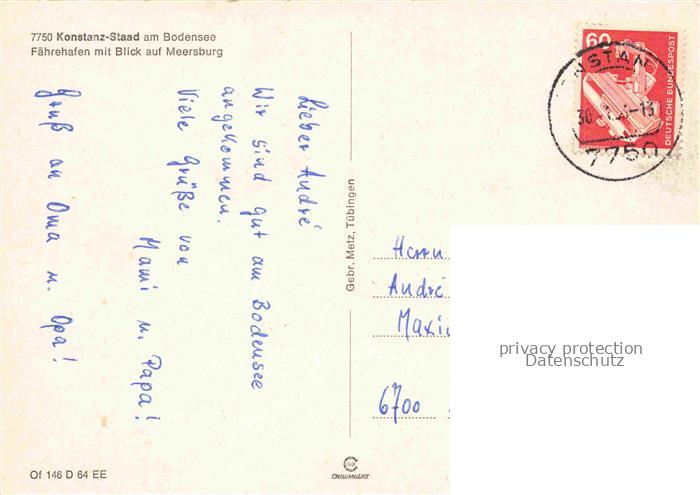 7750 Konstanz-Staad am Bodensee
Fährehafen mit Blick auf Meersburg
60
DEUTSCHE BUNDESPOST
NSTAN
7750
Lieber André
Wir sind gut am Bodensee
angekommen.
Viele Grüße von
Mami u. Papa!
Gruß an Oma u. Opa!
Gebr. Metz, Tübingen
Herrn
André
6700
privacy protection
Datenschutz
Of 146 D 64 EE
CHROMOLUX